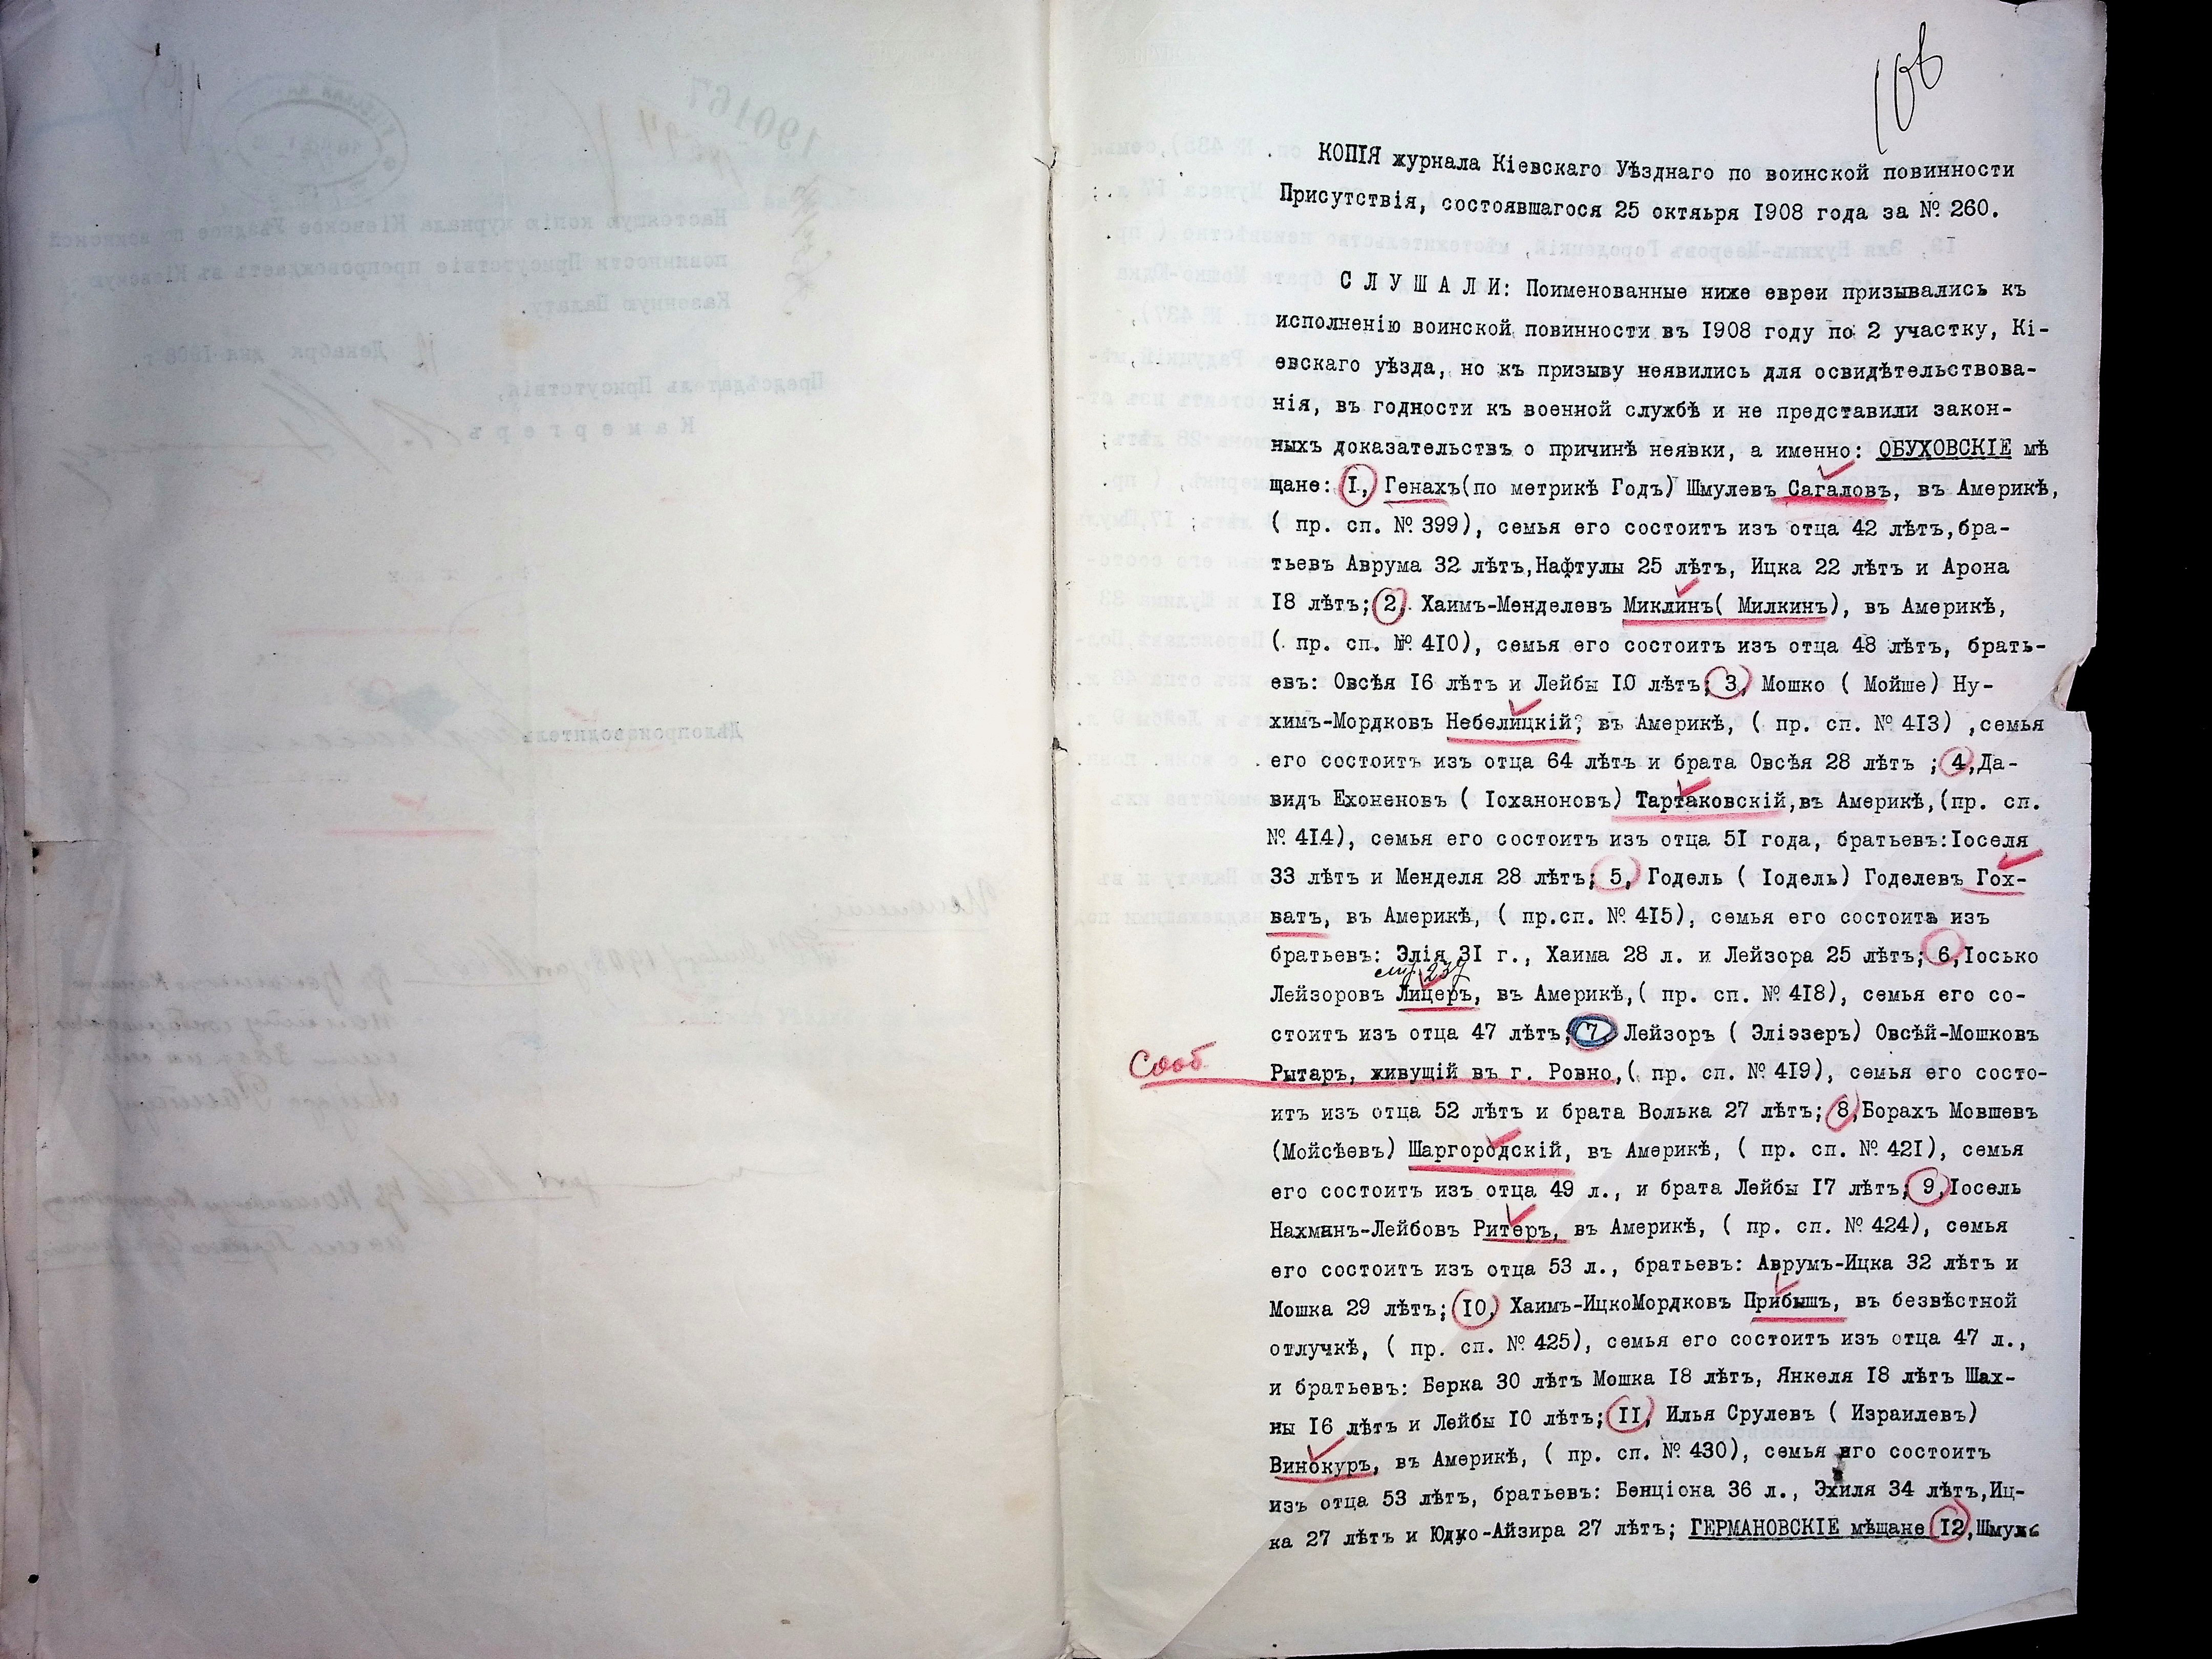 106
КОПІЯ журнала Кіевскаго Уѣзднаго по воинской повинности
Присутствія, состоявшагося 25 октяьря 1908 года за № 260.
С Л У Ш А Л И: Поименованные ниже евреи призывались къ
исполненію воинской повинности въ 1908 году по 2 участку, Кі-
евскаго уѣзда, но къ призыву неявились для освидѣтельствова-
нія, въ годности къ военной службѣ и не представили закон-
ныхъ доказательствъ о причинѣ неявки, а именно: ОБУХОВСКІЕ мѣ
щане: I, Генахъ(по метрикѣ Годъ) Шмулевъ Сагаловъ, въ Америкѣ,
( пр. сп. № 399), семья его состоитъ изъ отца 42 лѣтъ,бра-
тьевъ Аврума 32 лѣтъ,Нафтулы 25 лѣтъ, Ицка 22 лѣтъ и Арона
I8 лѣтъ; 2, Хаимъ-Менделевъ Миклинъ( Милкинъ), въ Америкѣ,
( пр. сп. № 4I0), семья его состоитъ изъ отца 48 лѣтъ, брать-
евъ: Овсѣя I6 лѣтъ и Лейбы I0 лѣтъ; 3, Мошко ( Мойше) Ну-
химъ-Мордковъ Небелицкій, въ Америкѣ, ( пр. сп. № 4I3) ,семья
его состоитъ изъ отца 64 лѣтъ и брата Овсѣя 28 лѣтъ ; 4,Да-
видъ Ехоненовъ ( Іоханоновъ) Тартаковскій,въ Америкѣ,(пр. сп.
№ 4I4), семья его состоитъ изъ отца 5I года, братьевъ:Іоселя
33 лѣтъ и Менделя 28 лѣтъ; 5, Годель ( Іодель) Годелевъ Гох-
ватъ, въ Америкѣ, ( пр.сп. № 4I5), семья его состоитъ изъ
братьевъ: Элія 3I г., Хаима 28 л. и Лейзора 25 лѣтъ; 6,Іосько
237
Лейзоровъ Лицеръ, въ Америкѣ,( пр. сп. № 4I8), семья его со-
стоитъ изъ отца 47 лѣтъ; 7, Лейзоръ ( Эліэзеръ) Овсѣй-Мошковъ
Сооб
Рытаръ, живущій въ г. Ровно,( пр. сп. № 4I9), семья его состо-
итъ изъ отца 52 лѣтъ и брата Волька 27 лѣтъ; 8,Борахъ Мовшевъ
(Мойсѣевъ) Шаргородскій, въ Америкѣ, ( пр. сп. № 42I), семья
его состоитъ изъ отца 49 л., и брата Лейбы I7 лѣтъ; 9,Іосель
Нахманъ-Лейбовъ Ритеръ, въ Америкѣ, ( пр. сп. № 424), семья
его состоитъ изъ отца 53 л., братьевъ: Аврумъ-Ицка 32 лѣтъ и
Мошка 29 лѣтъ; I0, Хаимъ-ИцкоМордковъ Прибышъ, въ безвѣстной
отлучкѣ, ( пр. сп. № 425), семья его состоитъ изъ отца 47 л.,
и братьевъ: Берка 30 лѣтъ Мошка I8 лѣтъ, Янкеля I8 лѣтъ Шах-
ны I6 лѣтъ и Лейбы I0 лѣтъ; II, Илья Срулевъ ( Израилевъ)
Винокуръ, въ Америкѣ, ( пр. сп. № 430), семья его состоитъ
изъ отца 53 лѣтъ, братьевъ: Бенціона 36 л., Эхиля 34 лѣтъ,Иц-
ка 27 лѣтъ и Юдко-Айзира 27 лѣтъ; ГЕРМАНОВСКІЕ мѣщане I2,Шмуль